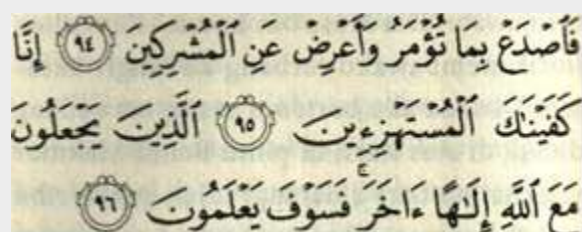 فَٱصْدَعْ بِمَا تُؤْمَرُ وَأَعْرِضْ عَنِ ٱلْمُشْرِكِينَ ٩٤ إِنَّا
كَفَيْنَـٰكَ ٱلْمُسْتَهْزِءِينَ ٩٥ ٱلَّذِينَ يَجْعَلُونَ
مَعَ ٱللَّهِ إِلَـٰهًا ءَاخَرَ ۚ فَسَوْفَ يَعْلَمُونَ ٩٦